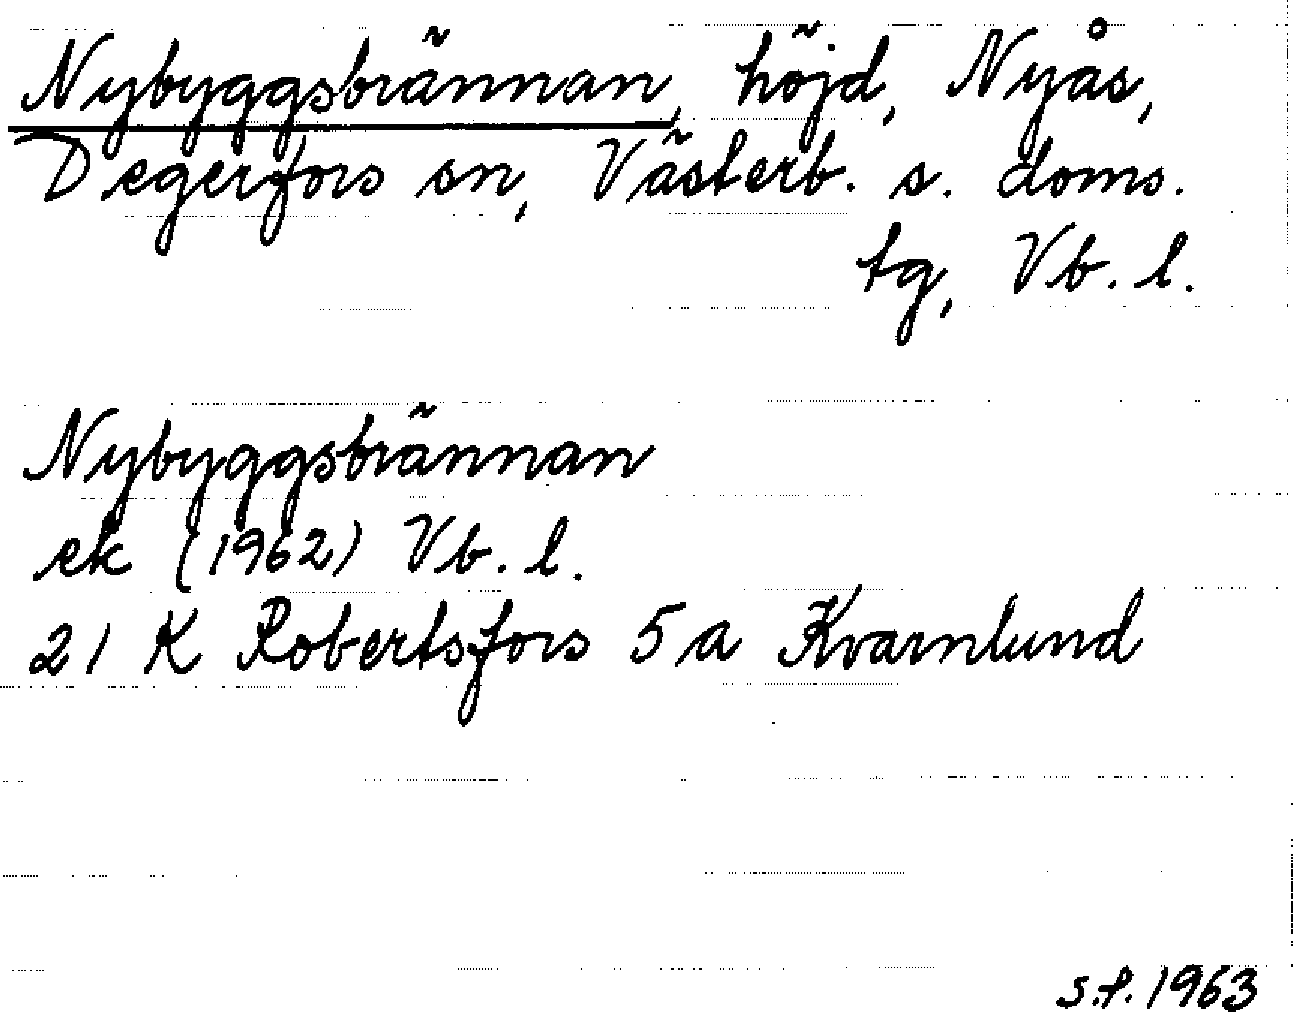 Nybyggsbrännan, höjd, Nyås,
Degerfors sn, Västerb. s. doms.
tg, Vb. l.
Nybyggsbrännan
ek (1962) Vb. l.
21 K Robertsfors 5a Kvarnlund
s.f. 1963